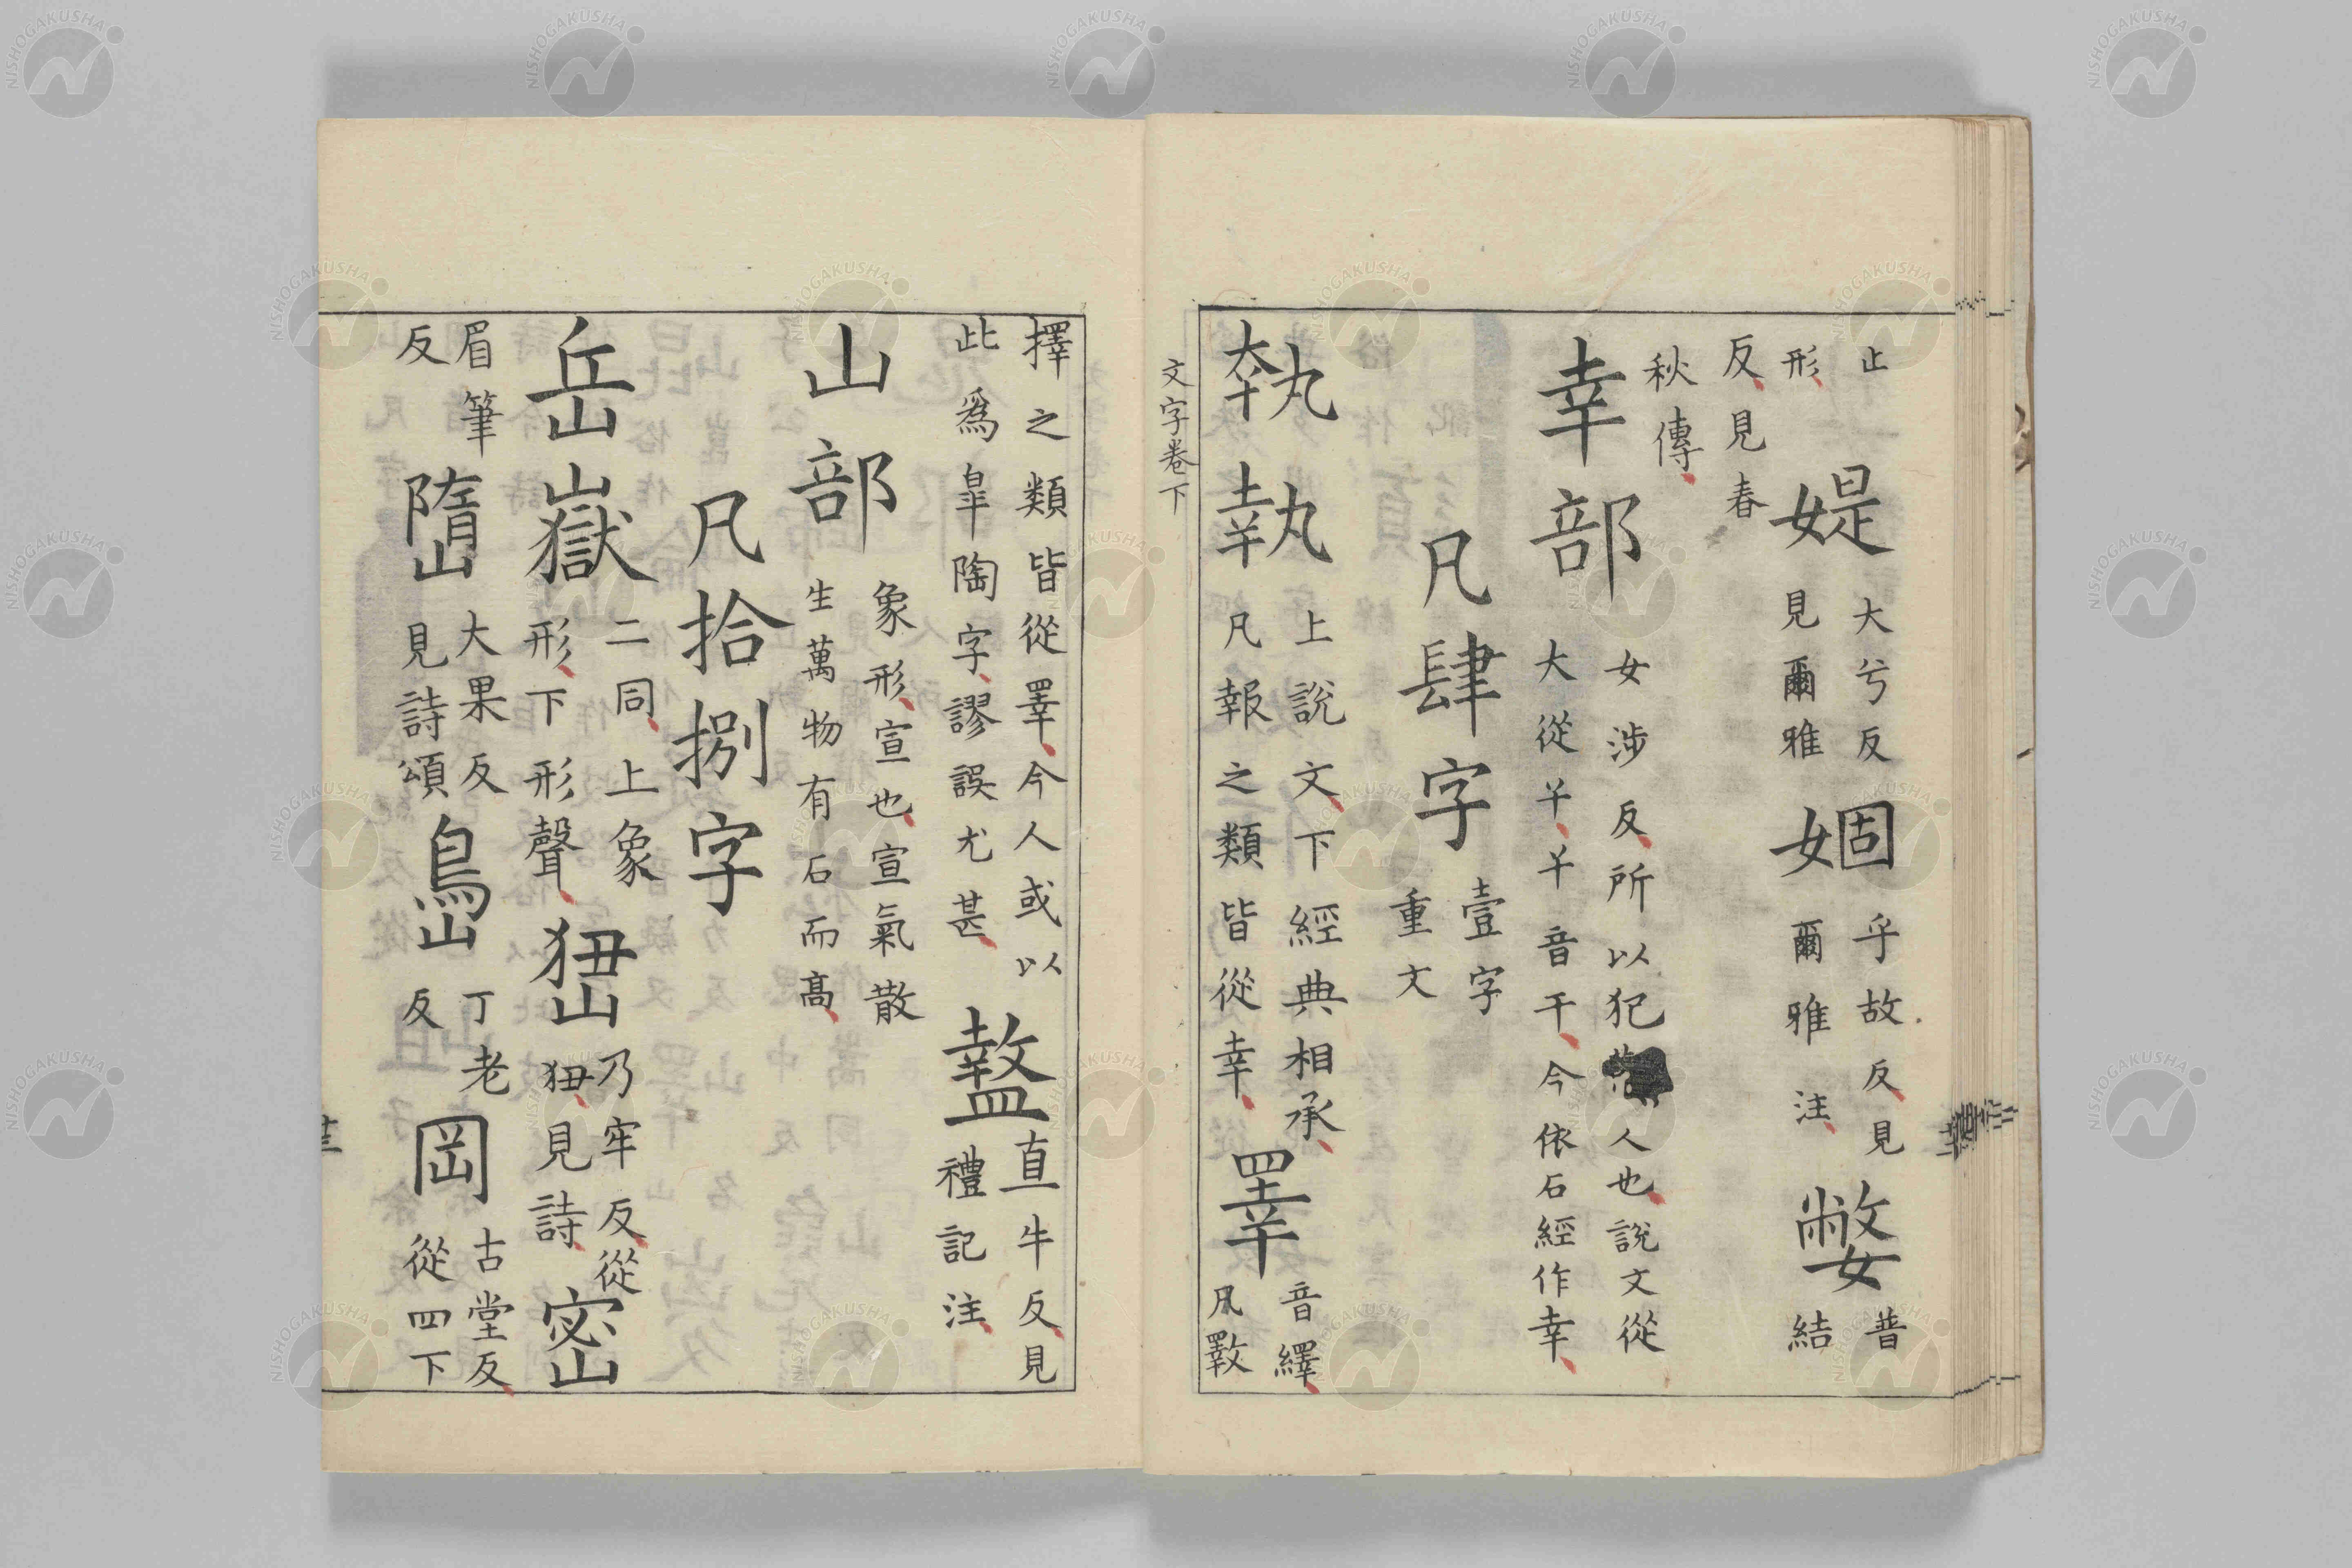 止
形
媞
大兮反
見爾雅
婟
乎故反見
爾雅注
嫳
普
結
反見春
秋傳
幸部
女涉反所以犯人也說文從
大從𢆉𢆉音干今依石經作幸
凡肆字
壹字
重文
執
上說文下經典相承
凡報之類皆從幸
睪
音繹
凡斁
文字卷下
擇之類皆從睪今人或以
此爲皐陶字謬誤尤甚
盩
直牛反見
禮記注
山部
象形宣也宣氣散
生萬物有石而高
凡拾捌字
岳嶽
二同上象
形下形聲
峱
乃牢反從
狃見詩
密
眉筆
反
嶞
大果反
見詩頌
島
丁老
反
岡
古堂反
從四下
NISHOGAKUSHA